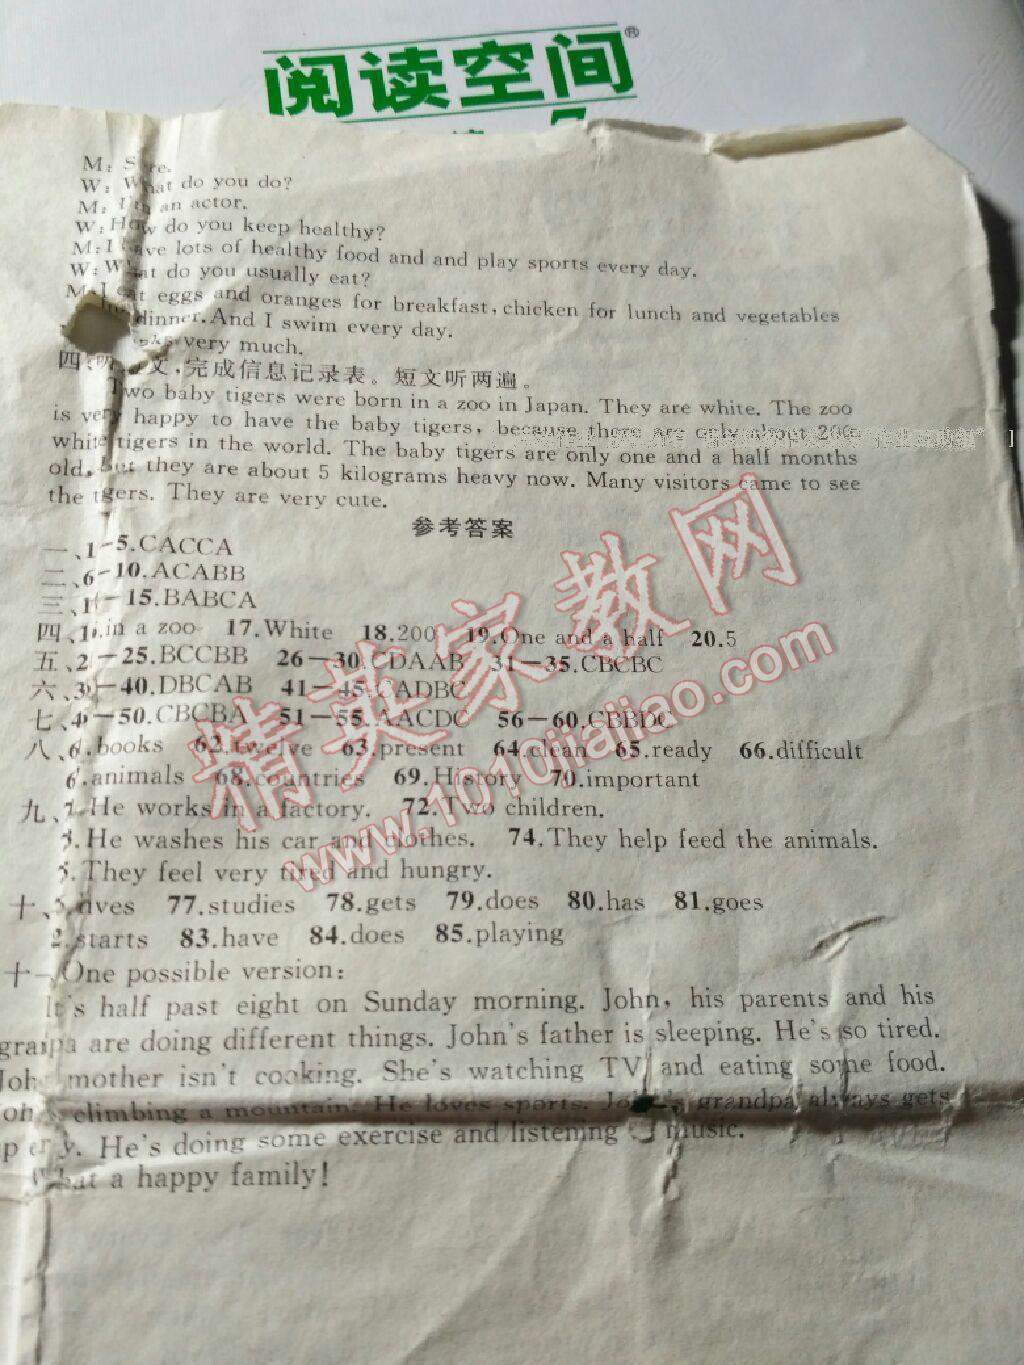 阅读空间®
M: Sure.
W: What do you do?
M: I'm an actor.
W: How do you keep healthy?
M: I have lots of healthy food and and play sports every day.
W: What do you usually eat?
M: I eat eggs and oranges for breakfast, chicken for lunch and vegetables
dinner. And I swim every day.
very much.
四、听 文，完成信息记录表。短文听两遍。
Two baby tigers were born in a zoo in Japan. They are white. The zoo
is very happy to have the baby tigers, because there are only about 200
white tigers in the world. The baby tigers are only one and a half months
old, but they are about 5 kilograms heavy now. Many visitors came to see
the tigers. They are very cute.
参考答案
一、1-5. CACCA
二、6-10. ACABB
三、11-15. BABCA
四、16. in a zoo 17. White 18. 200 19. One and a half 20. 5
五、21-25. BCCBB 26-30. CDAAB 31-35. CBCBC
六、36-40. DBCAB 41-45. CADBC
七、46-50. CBCBA 51-55. AACDC 56-60. CBBDC
八、61. books 62. twelve 63. present 64. clean 65. ready 66. difficult
67. animals 68. countries 69. History 70. important
九、71. He works in a factory. 72. Two children.
73. He washes his car and clothes. 74. They help feed the animals.
75. They feel very tired and hungry.
十、76. lives 77. studies 78. gets 79. does 80. has 81. goes
82. starts 83. have 84. does 85. playing
十一、One possible version:
It's half past eight on Sunday morning. John, his parents and his
grandpa are doing different things. John's father is sleeping. He's so tired.
John's mother isn't cooking. She's watching TV and eating some food.
John is climbing a mountain. He loves sports. John's grandpa always gets
up early. He's doing some exercise and listening to music.
What a happy family!
精英家教网
www.1010jiajiao.com